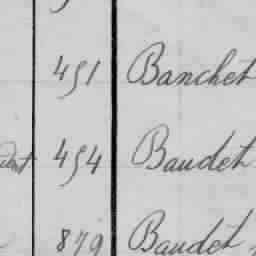 451 Banchet
454 Baudet
879 Baudet